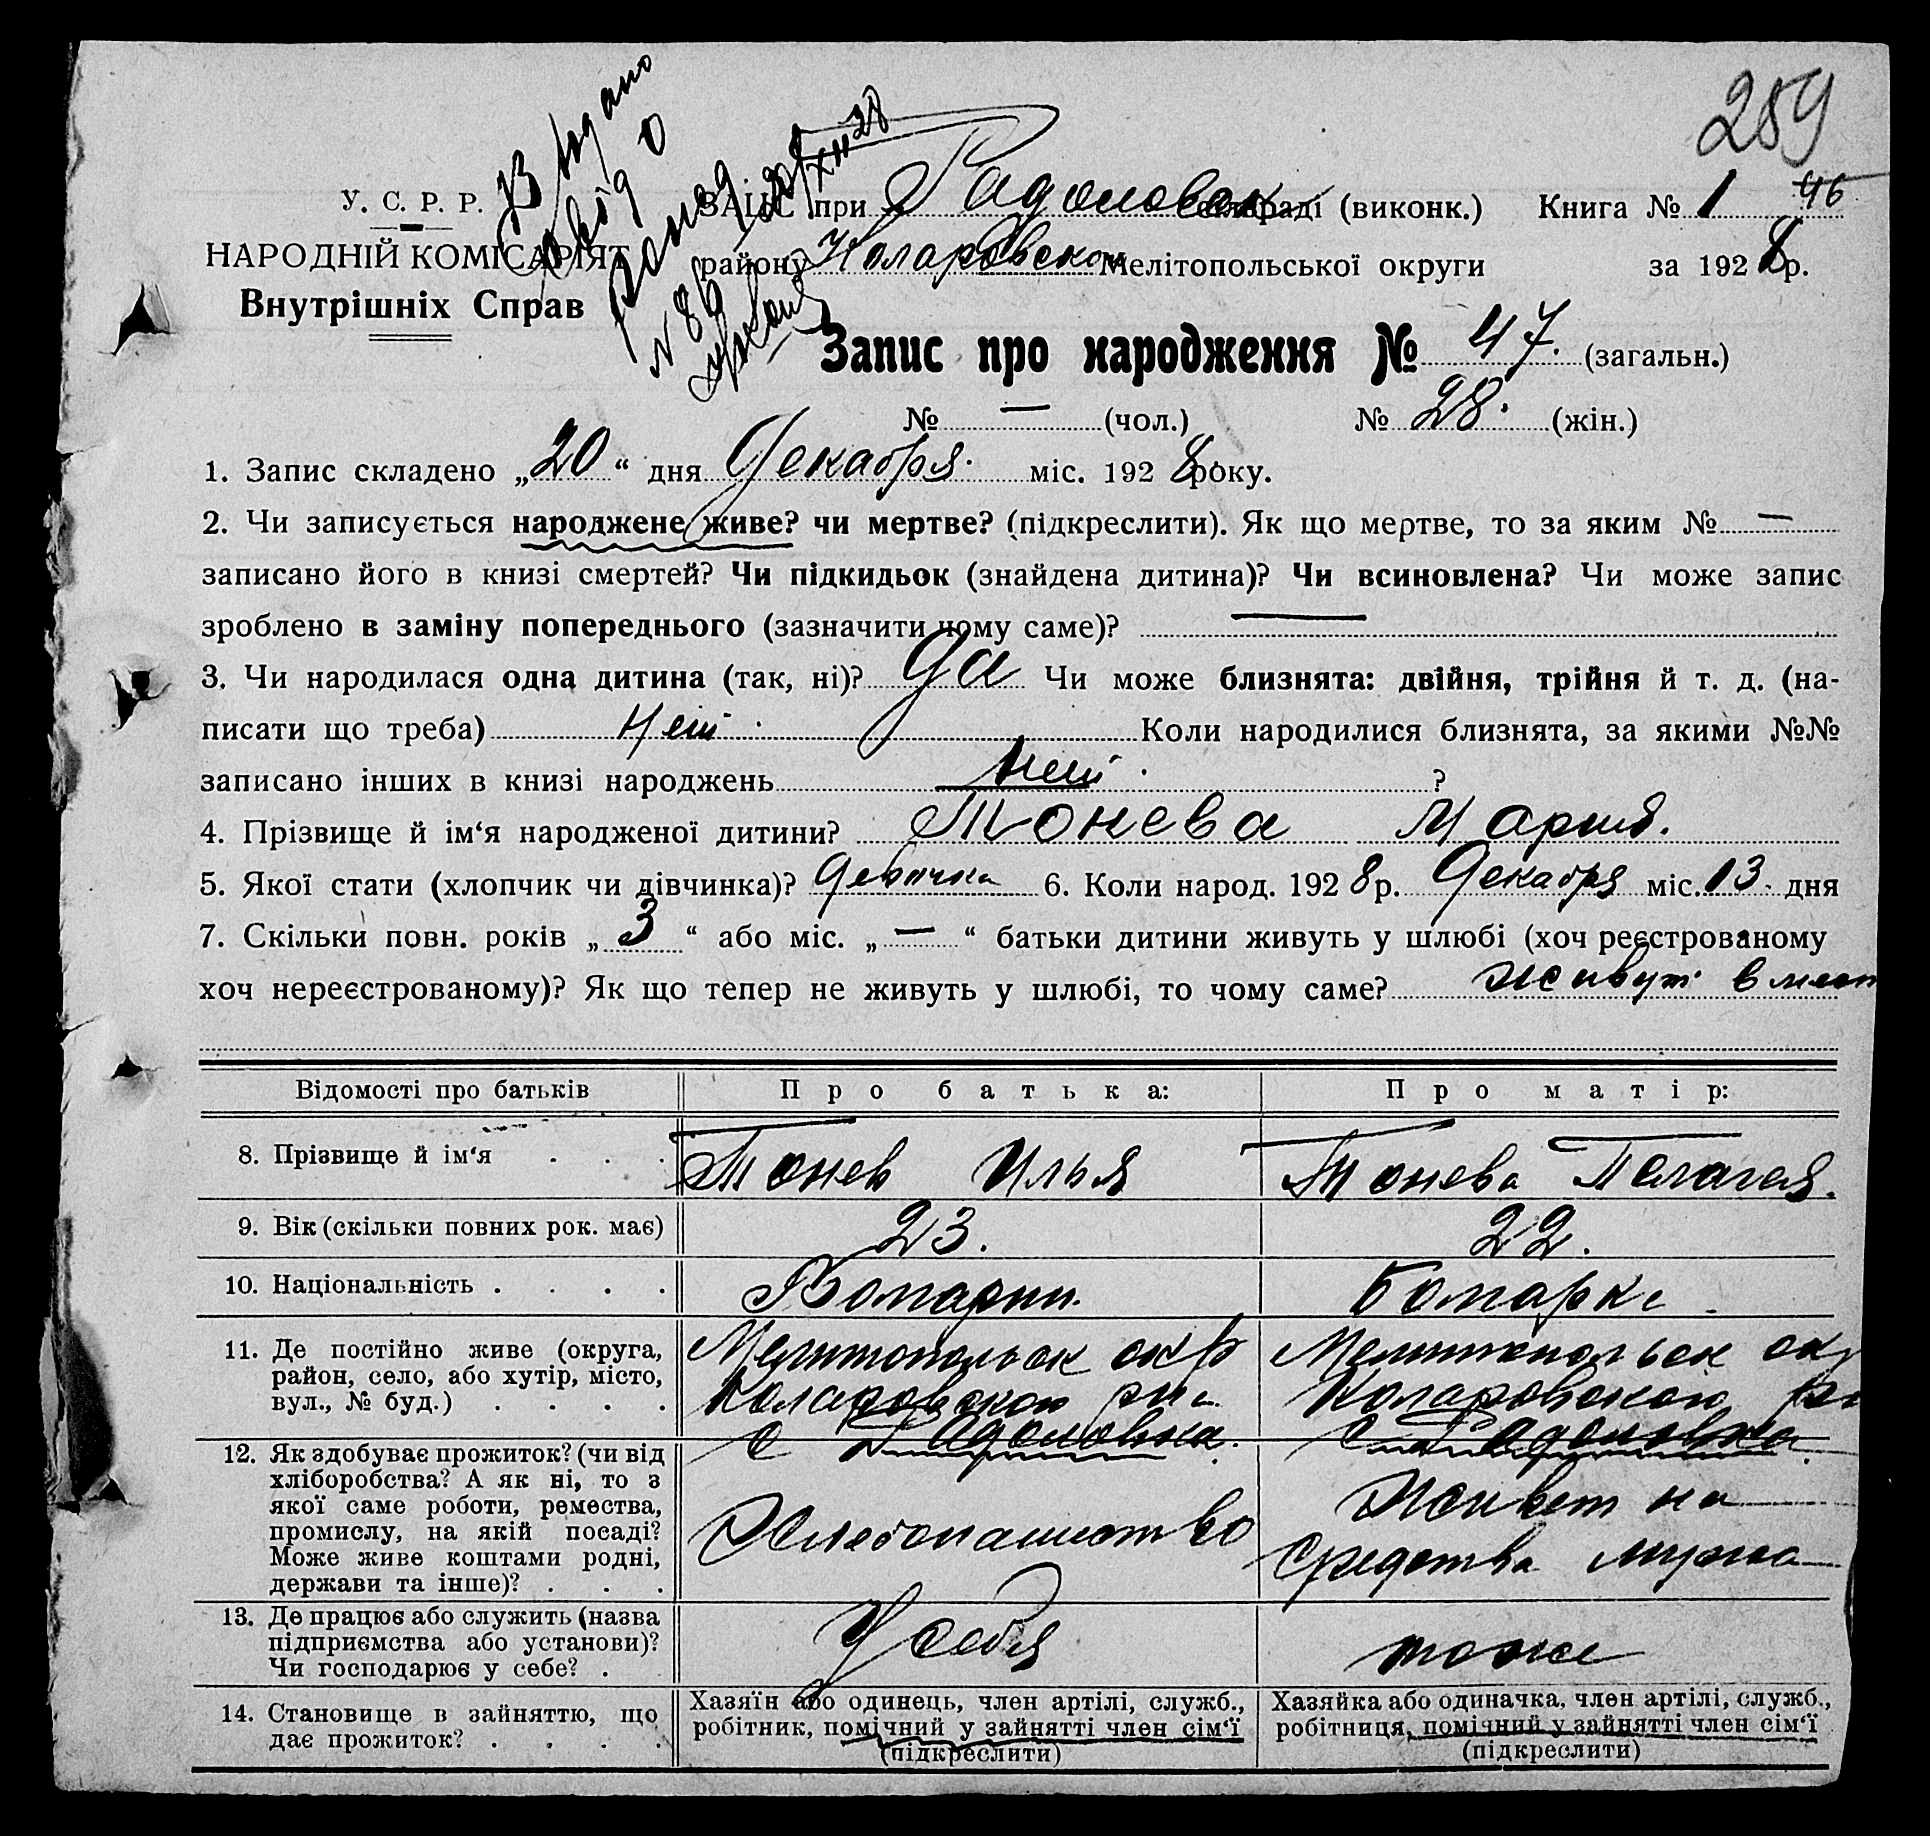 289
Выдано
У. С. Р. Р.
НАРОДНІЙ КОМІСАРІЯТ
Внутрішніх Справ
ЗАЦС при Радоловск сельраді (виконк.) Книга № 1 46
району Коларовском Мелітопольської округи за 1928 р.
Запис про народження № 47. (загальн.)
№ — (чол.) № 28. (жін.)
1. Запис складено „20“ дня Декабря міс. 1928 року.
2. Чи записується народжене живе? чи мертве? (підкреслити). Як що мертве, то за яким № —
записано його в книзі смертей? Чи підкидьок (знайдена дитина)? Чи всиновлена? Чи може запис
зроблено в заміну попереднього (зазначити чому саме)? —
3. Чи народилася одна дитина (так, ні)? Да Чи може близнята: двійня, трійня й т. д. (на-
писати що треба) Нет. Коли народилися близнята, за якими №№
записано інших в книзі народжень нет. ?
4. Прізвище й ім‘я народженої дитини? Тонева Мария.
5. Якої стати (хлопчик чи дівчинка)? Девочка 6. Коли народ. 1928 р. Декабря міс. 13 дня
7. Скільки повн. років „3“ або міс. „—“ батьки дитини живуть у шлюбі (хоч реєстрованому
хоч нереєстрованому)? Як що тепер не живуть у шлюбі, то чому саме? Живут вмест
Відомості про батьків Про батька: Про матір:
8. Прізвище й ім‘я . . . Тонев Илья Тонева Пелагея.
9. Вік (скільки повних рок. має) 23. 22.
10. Національність . . . . Болгарин. Болгарка
11. Де постійно живе (округа,
район, село, або хутір, місто,
вул., № буд.) . . . .
Мелитопольск окр
Коларовской рн
с Радоловка.
Мелитопольск окр
Коларовской рн
с Радоловка
12. Як здобуває прожиток? (чи від
хліборобства? А як ні, то з
якої саме роботи, ремества,
промислу, на якій посаді?
Може живе коштами родні,
держави та інше)? . . .
Хлебопашество
Живет на
средства мужа
13. Де працює або служить (назва
підприємства або установи)?
Чи господарює у себе? .
У себя
тоже
14. Становище в зайняттю, що
дає прожиток? . . . .
Хазяїн або одинець, член артілі, служб.,
робітник, помічний у зайнятті член сім‘ї
(підкреслити)
Хазяйка або одиначка, член артілі, служб.,
робітниця, помічний у зайнятті член сім‘ї
(підкреслити)